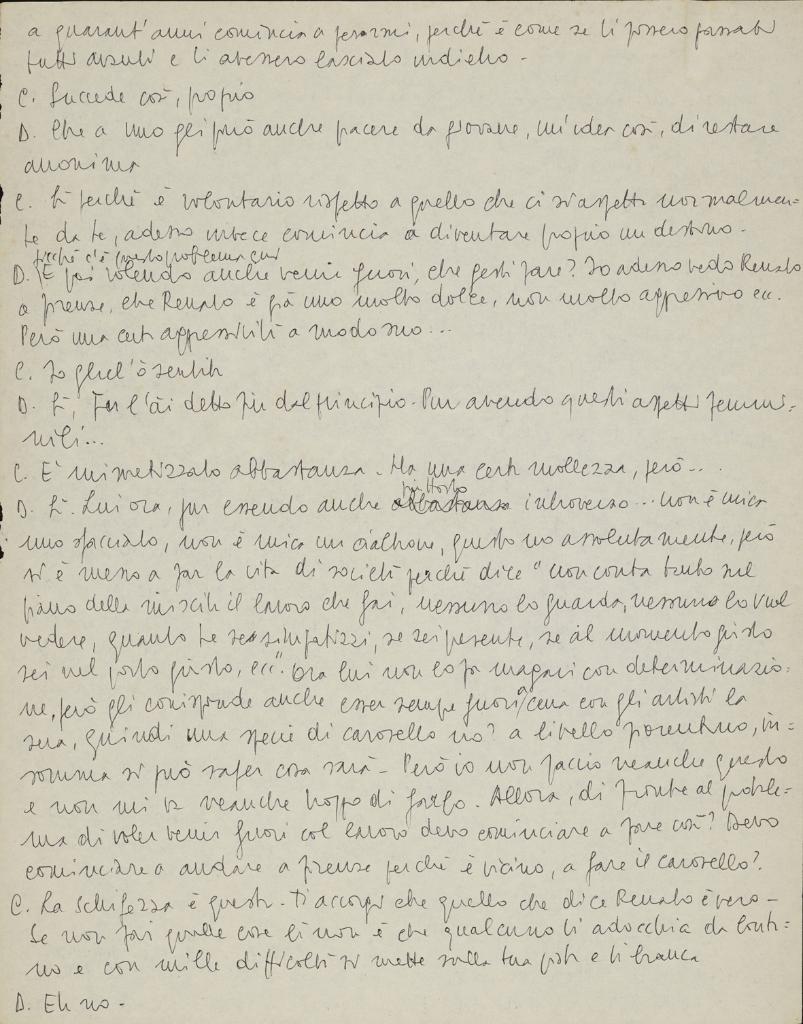 a quarant'anni comincia a pesarmi, perché è come se ti fossero passati
tutti avanti e ti avessero lasciato indietro -
C. Succede così, proprio
D. Che a uno gli può anche piacere da giovane, un'idea così, di restare
anonima
C. Sì perché è volontario rispetto a quello che ci si aspetta normalmen=
te da te, adesso invece comincia a diventare proprio un destino -
perché c'è questo problema qui
D. E poi volendo anche venir fuori, che gesti fare? Io adesso vedo Renato
a Firenze, che Renato è già uno molto dolce, non molto aggressivo ecc.
Però una certa aggressività a modo suo...
C. Io gliel'ò sentita
D. Sì, tu l'ài detto fin dal principio. Pur avendo questi aspetti femmi=
nili...
C. E' mimetizzato abbastanza - Ha una certa mollezza, però...
piuttosto
D. Sì. Lui ora, pur essendo anche abbastanza introverso... non è mica
uno sfacciato, non è mica un cialtrone, questo no assolutamente, però
si è messo a far la vita di società perché dice "non conta tanto sul
piano della riuscita il lavoro che fai, nessuno lo guarda, nessuno lo vuol
vedere, quanto te se simpatizzi, se sei presente, se al momento giusto
sei nel posto giusto, ecc". Ora lui non lo fa magari con determinazio=
ne, però gli corrisponde anche esser sempre fuori a cena con gli artisti la
sera, quindi una specie di carosello no? a livello fiorentino, in=
somma si può saper cosa sarà - Però io non faccio neanche questo
e non mi va neanche troppo di farlo. Allora, di fronte al proble=
ma di voler venir fuori col lavoro devo cominciare a fare così? Devo
cominciare a andare a Firenze perché è vicino, a fare il carosello?
C. La schifezza è questa - Ti accorgi che quello che dice Renato è vero -
Se non fai quelle cose lì non è che qualcuno ti adocchia da lonta=
no e con mille difficoltà si mette sulla tua pista e ti branca
D. Eh no -